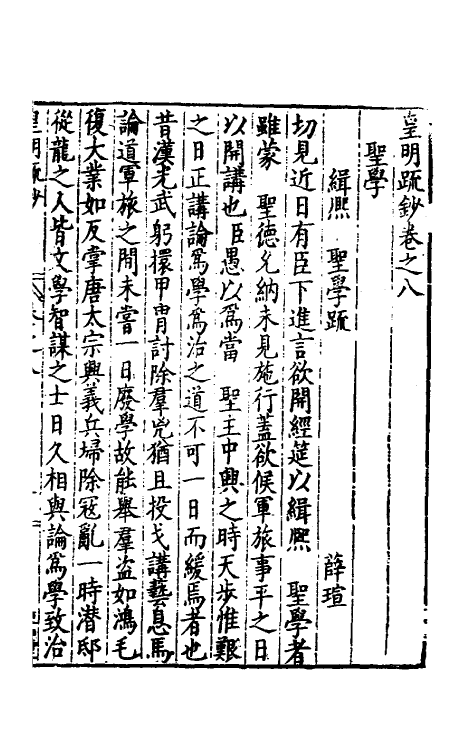 皇明疏鈔卷之八
聖學
緝熙　聖學疏　薛瑄
切見近日有臣下進言欲開經筵以緝熙　聖學者
雖蒙　聖德允納未見施行蓋欲候軍旅事平之日
以開講也臣愚以爲當　聖主中興之時天步惟艱
之日正講論爲學爲治之道不可一日而緩焉者也
昔漢光武躬擐甲冑討除羣兇猶且投戈講藝息馬
論道軍旅之間未嘗一日廢學故能舉羣盜如鴻毛
復大業如反掌唐太宗興義兵埽除冦亂一時潜邸
從龍之人皆文學智謀之士日久相與論爲學致治
皇明疏鈔　卷之八